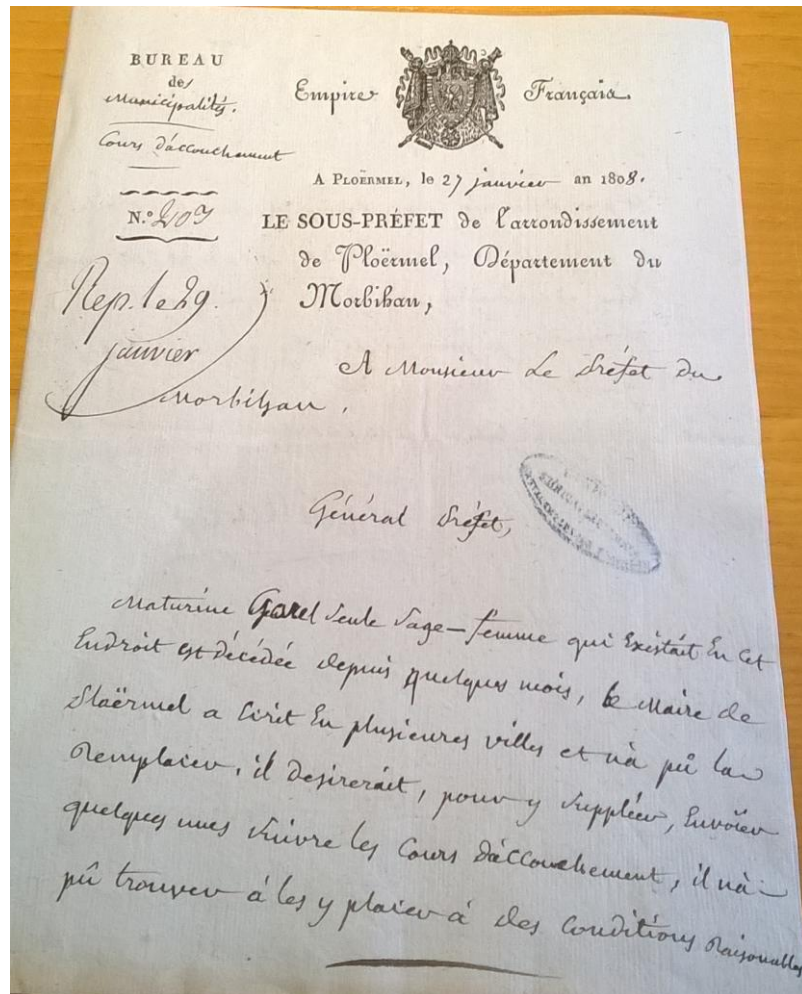 BUREAU
des
Municipalités.
Cours d'accouchement
N.º 203
Rep. le 29.
janvier
Empire Français.
A PLOËRMEL, le 27 janvier an 1808.
LE SOUS-PRÉFET de l'arrondissement
de Ploërmel, Département du
Morbihan,
A Monsieur Le Préfet du
Morbihan.
Général Préfet,
Maturine Garel Seule Sage-femme qui Existait En Cet
Endroit est décédée depuis quelques mois, le Maire de
Ploërmel a Ecrit En plusieures villes et n'a pû la
Remplacer, il desirerait, pour y Suppléer, Envoïer
quelques unes Suivre les Cours d'accouchement, il n'a
pû trouver à les y placer à des Conditions Raisonables